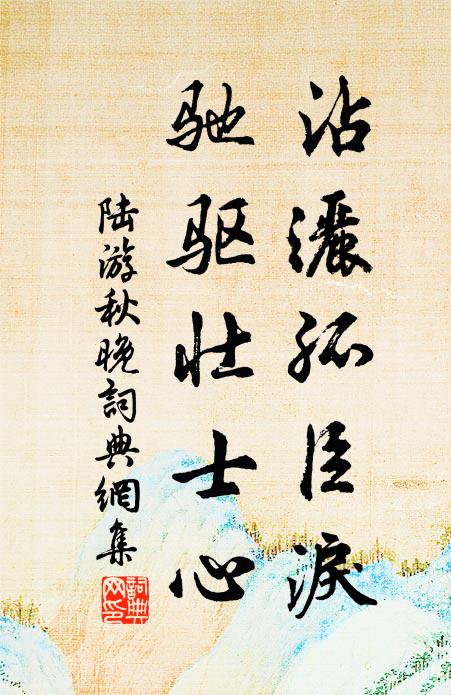 沾灑孤臣淚
驰驱壮士心
陆游秋晚詞典網集
詞典網印